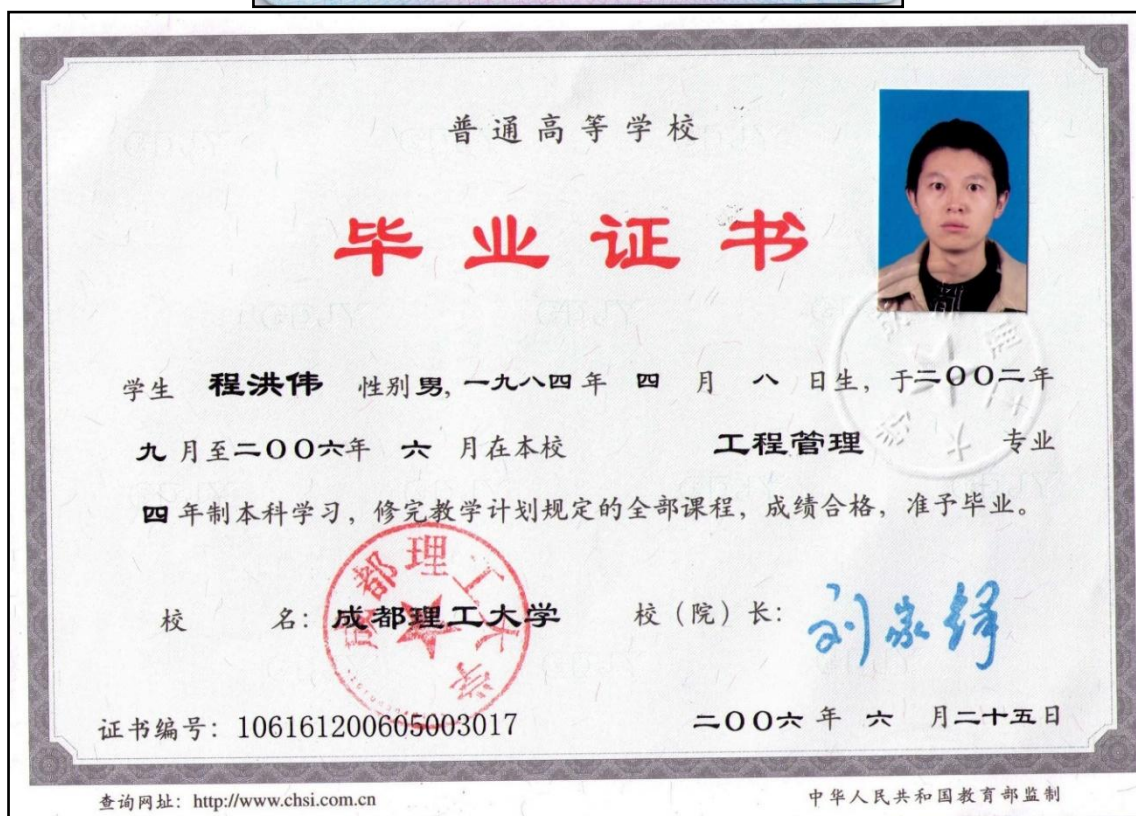 普通高等学校
毕业证书
学生 程洪伟 性别 男, 一九八四年 四 月 八 日生, 于二〇〇二年
九 月至二〇〇六年 六 月在本校 工程管理 专业
四 年制本科学习, 修完教学计划规定的全部课程, 成绩合格, 准予毕业。
成都理工大学
校 名: 成都理工大学 校(院)长: 刘家铎
证书编号: 106161200605003017 二〇〇六 年 六 月二十五日
查询网址: http://www.chsi.com.cn 中华人民共和国教育部监制